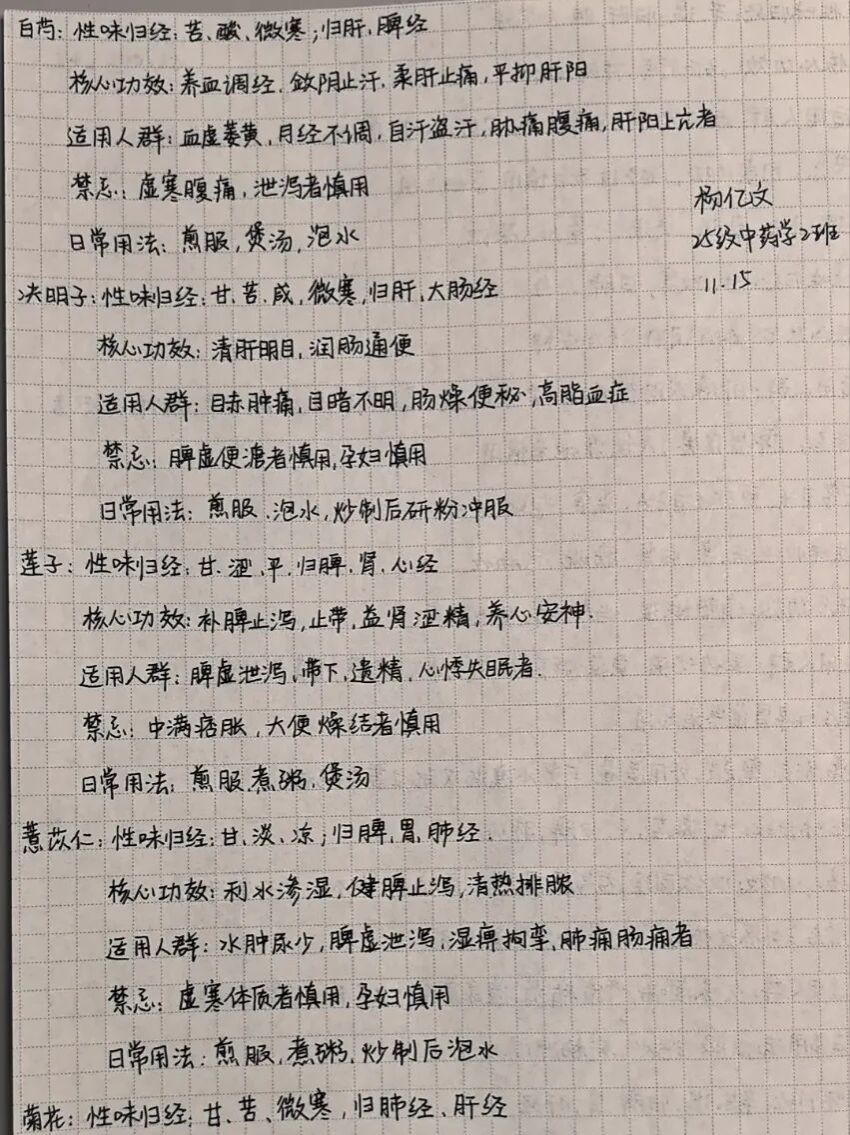 白芍：性味归经：苦、酸、微寒；归肝、脾经
核心功效：养血调经，敛阴止汗，柔肝止痛，平抑肝阳
适用人群：血虚萎黄，月经不调，自汗盗汗，胁痛腹痛，肝阳上亢者
禁忌：虚寒腹痛，泄泻者慎用
杨亿文
日常用法：煎服，煲汤，泡水
25级中药学2班
11.15
决明子：性味归经：甘、苦、咸，微寒，归肝、大肠经
核心功效：清肝明目，润肠通便
适用人群：目赤肿痛，目暗不明，肠燥便秘，高脂血症
禁忌：脾虚便溏者慎用，孕妇慎用
日常用法：煎服、泡水，炒制后研粉冲服
莲子：性味归经：甘、涩、平，归脾、肾、心经
核心功效：补脾止泻，止带，益肾涩精，养心安神．
适用人群：脾虚泄泻，带下，遗精，心悸失眠者．
禁忌：中满痞胀，大便燥结者慎用
日常用法：煎服，煮粥，煲汤
薏苡仁：性味归经：甘、淡、凉；归脾、胃、肺经．
核心功效：利水渗湿，健脾止泻，清热排脓
适用人群：水肿尿少，脾虚泄泻，湿痹拘挛，肺痈肠痈者
禁忌：虚寒体质者慎用，孕妇慎用
日常用法：煎服，煮粥，炒制后泡水
菊花：性味归经：甘、苦、微寒，归肺经、肝经